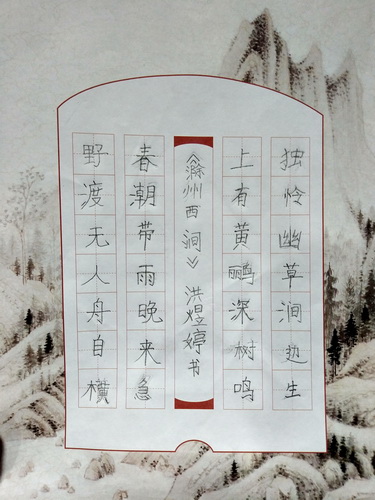 独怜幽草涧边生
上有黄鹂深树鸣
《滁州西涧》 洪煜婷书
春朝带雨晚来急
野渡无人舟自横